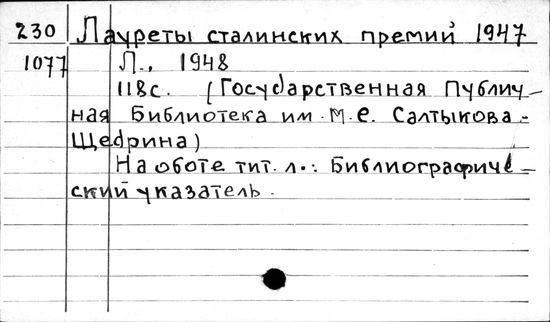 230 Лауреты сталинских премий 1947
1077 Л., 1948
118с. (Государственная Публич-
ная Библиотека им. М.Е. Салтыкова-
Щедрина)
На оботе тит. л.: Библиографиче-
ский указатель.